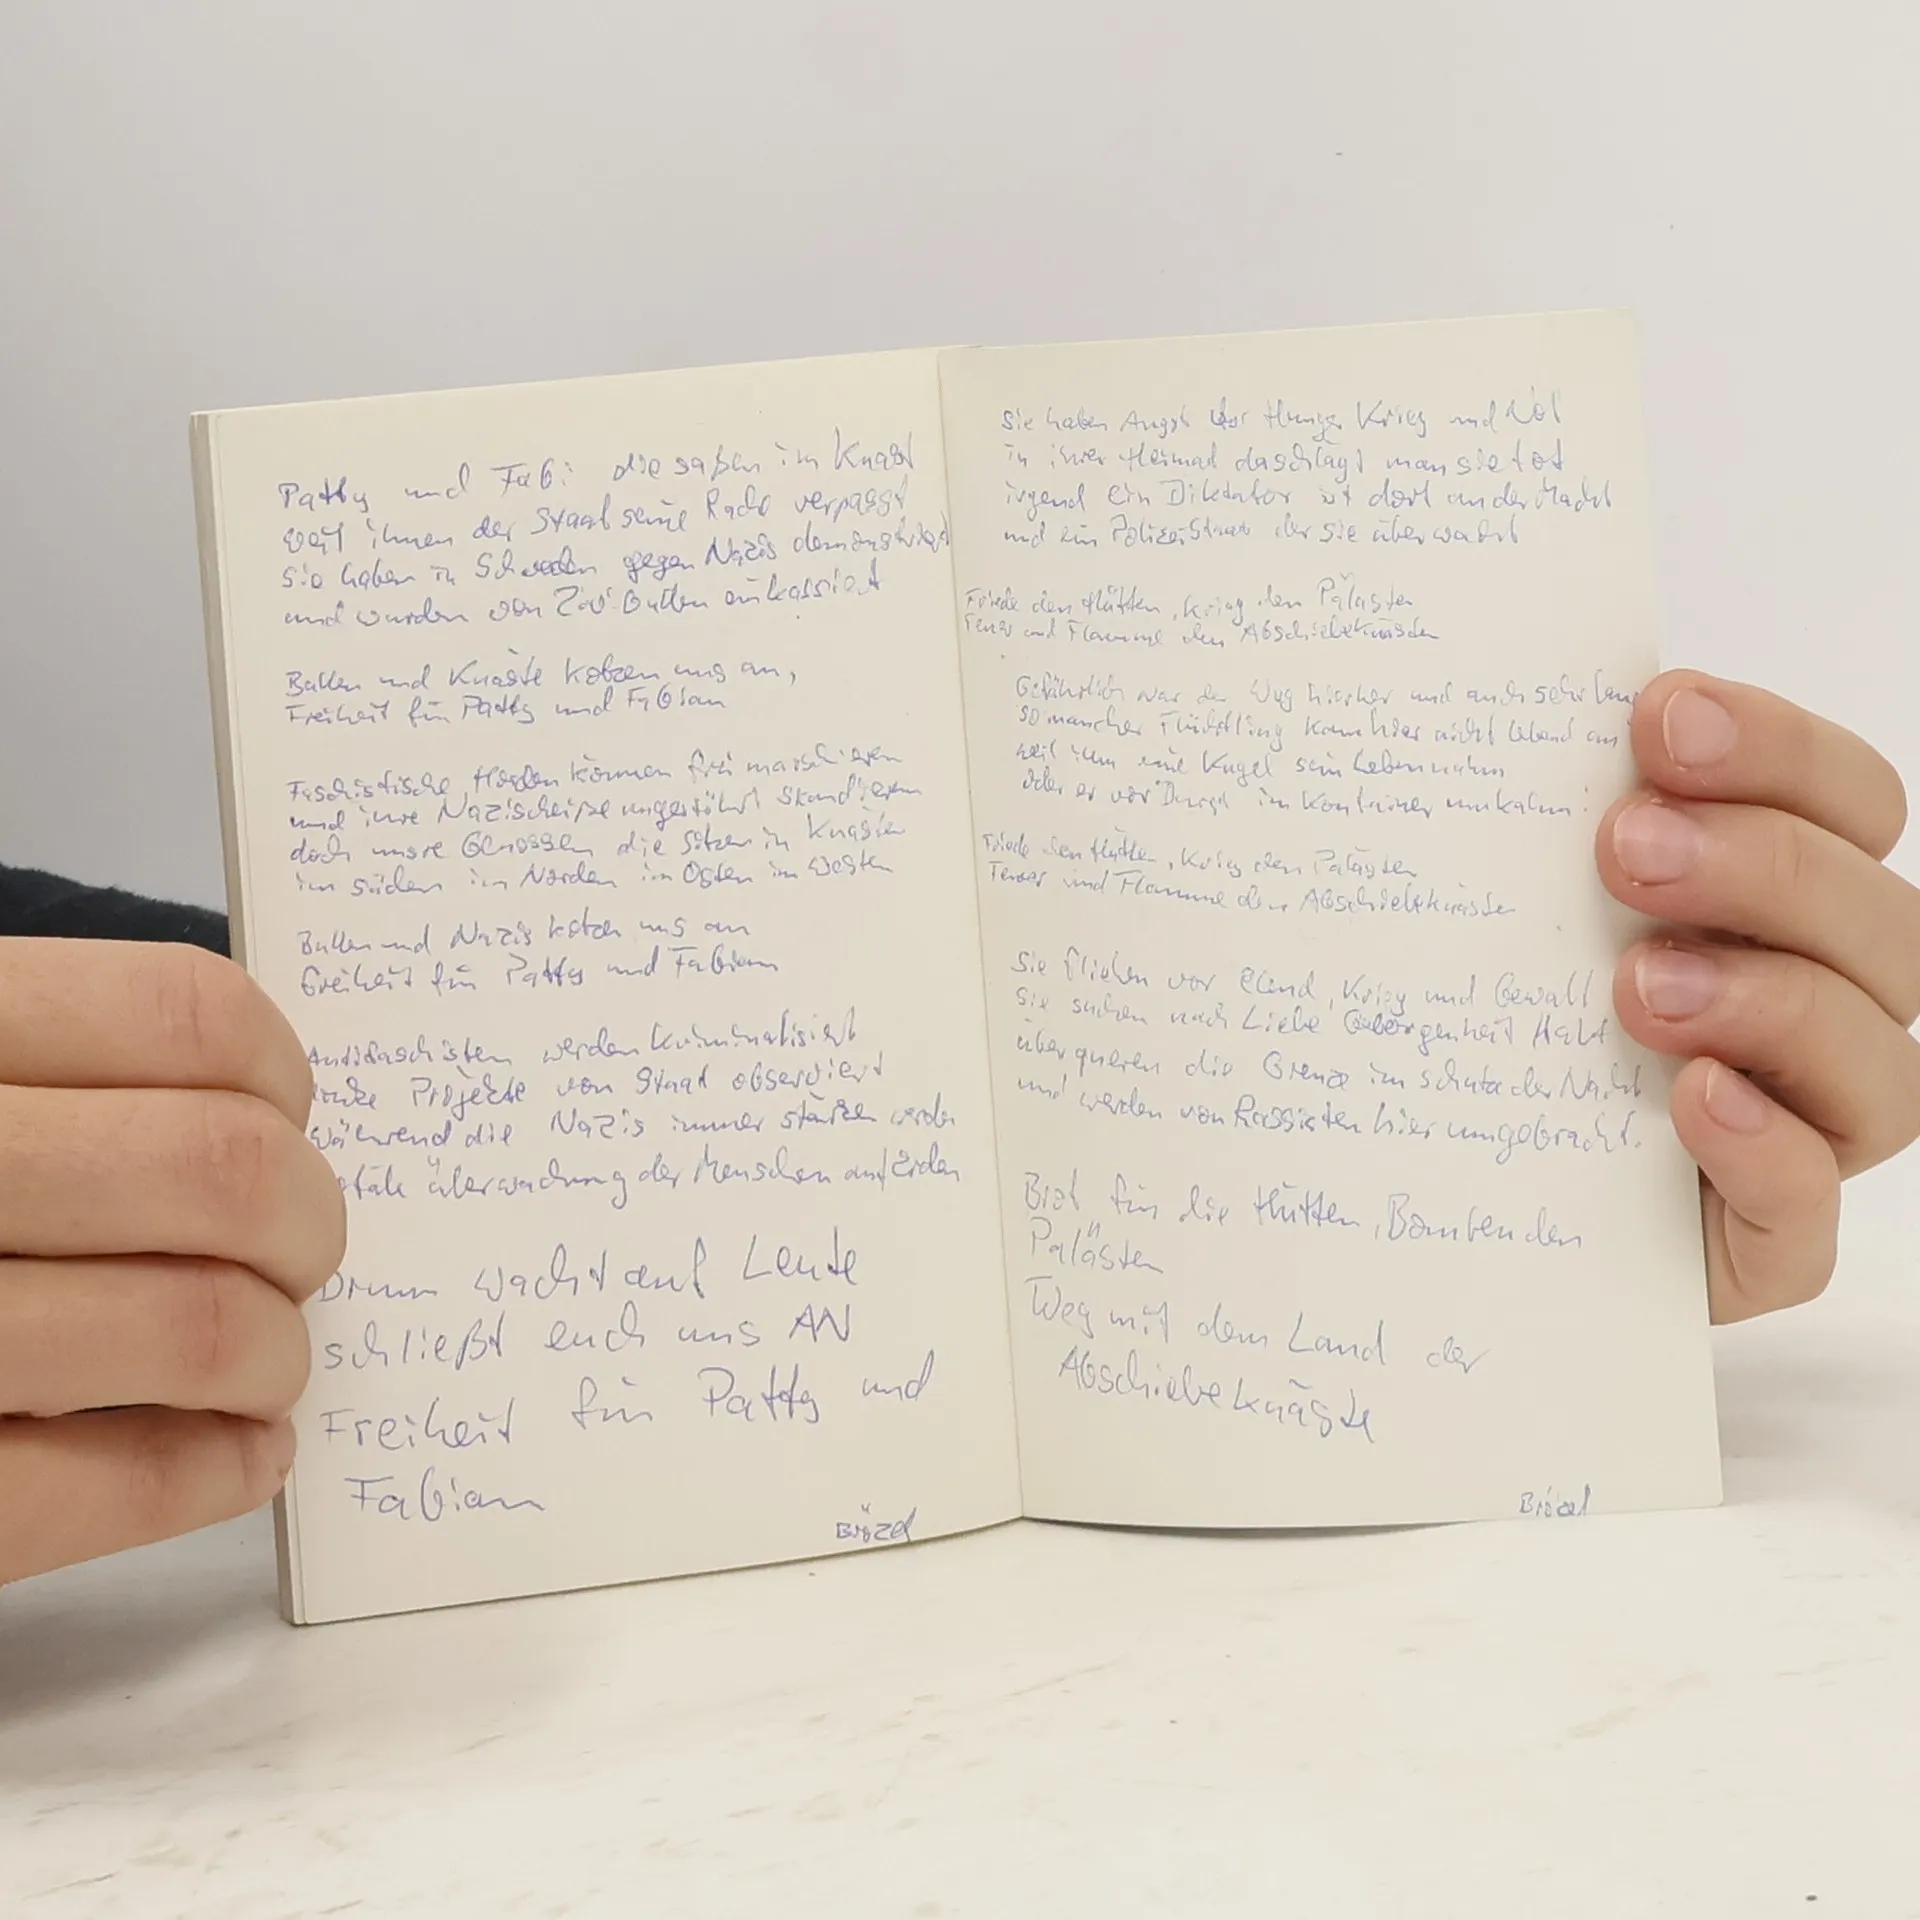 Patty und Fabi die saßen im Knast
weil ihnen der Staat seine Rache verpasst
sie haben in Schweden gegen Nazis demonstriert
und wurden von Zivi-Bullen einkassiert
Bullen und Knäste kotzen uns an,
Freiheit für Patty und Fabian
Faschistische Horden können frei marschieren
und ihre Nazischeiße ungestört skandieren
doch unsre Genossen die sitzen in Knästen
im Süden im Norden im Osten im Westen
Bullen und Nazis kotzen uns an
Freiheit für Patty und Fabian
Antifaschisten werden kriminalisiert
linke Projekte vom Staat observiert
während die Nazis immer stärker werden
totale Überwachung der Menschen auf Erden
Drum wacht auf Leute
schließt euch uns AN
Freiheit für Patty und
Fabian
Brözel
Sie haben Angst vor Hunger Krieg und Not
in ihrer Heimat da schlägt man sie tot
irgend ein Diktator ist dort an der Macht
und ein Polizeistaat der sie überwacht
Friede den Hütten, Krieg den Palästen
Feuer und Flamme den Abschiebeknästen
Gefährlich war der Weg hierher und auch sehr lang
so mancher Flüchtling kam hier nicht lebend an
weil ihm eine Kugel sein Leben nahm
oder er vor Durst im Kontainer umkahm!
Friede den Hütten, Krieg den Palästen
Feuer und Flamme den Abschiebeknästen
Sie fliehen vor Elend, Krieg und Gewalt
Sie suchen nach Liebe Geborgenheit Halt
überqueren die Grenze im Schutz der Nacht
und werden von Rassisten hier umgebracht.
Brot für die Hütten, Bomben den
Palästen
Weg mit dem Land der
Abschiebeknäste
Brözel